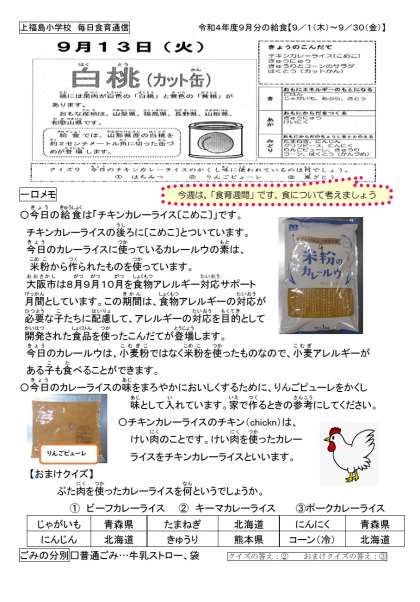 上福島小学校 毎日食育通信
令和4年度9月分の給食【9/1(木)~9/30(金)】
9月13日(火)
白桃(カット缶)
はくとう
桃には果肉が白色の「白桃」と黄色の「黄桃」が
あります。
おもな産地は、山梨県、福島県、長野県、山形県、
和歌山県です。
給食では、山形県産の白桃を
約2センチメートル角に切った缶づ
めが登場します。
きょうのこんだて
チキンカレーライス[こめこ]
ぎゅうにゅう
きゅうりとコーンのサラダ
はくとう(カットかん)
おもにエネルギーのもとになる
き
あか
みどり
クイズ② 今日のチキンカレーライスのかくし味に使われているものは何でしょう。
① はちみつ ② りんごピューレ
一口メモ
今週は、「食育週間」です。食について考えましょう
○今日の給食は「チキンカレーライス[こめこ]」です。
チキンカレーライスの後ろに[こめこ]とついています。
今日のカレーライスに使っているカレールウの素は、
米粉から作られたものを使っています。
大阪市は8月9月10月を食物アレルギー対応サポート
月間としています。この期間は、食物アレルギーの対応が
必要な子たちに配慮して、アレルギーの対応を目的として
開発された食品を使ったこんだてが登場します。
今日のカレールウは、小麦粉ではなく米粉を使ったものなので、小麦アレルギーが
ある子も食べることができます。
米粉の
カレールウ
○今日のカレーライスの味をまろやかにおいしくするために、りんごピューレをかくし
味として入れています。家で作るときの参考にしてください。
りんごピューレ
○チキンカレーライスのチキン(chickn)は、
けい肉のことです。けい肉を使ったカレー
ライスをチキンカレーライスといいます。
【おまけクイズ】
ぶた肉を使ったカレーライスを何というでしょうか。
① ビーフカレーライス ② キーマカレーライス ③ポークカレーライス
じゃがいも 青森県 たまねぎ 北海道 にんにく 青森県
にんじん 北海道 きゅうり 熊本県 コーン(冷) 北海道
ごみの分別 □普通ごみ…牛乳ストロー、袋
クイズの答え:② おまけクイズの答え:③